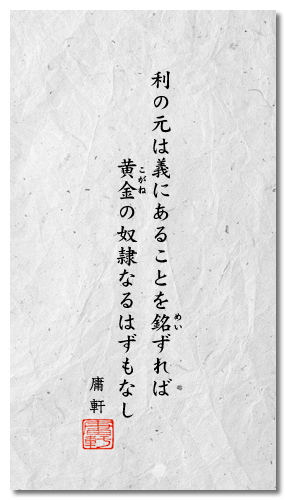 利の元は義にあることを銘ずれば
めい
黄金の奴隷なるはずもなし
こがね
庸軒
庸軒